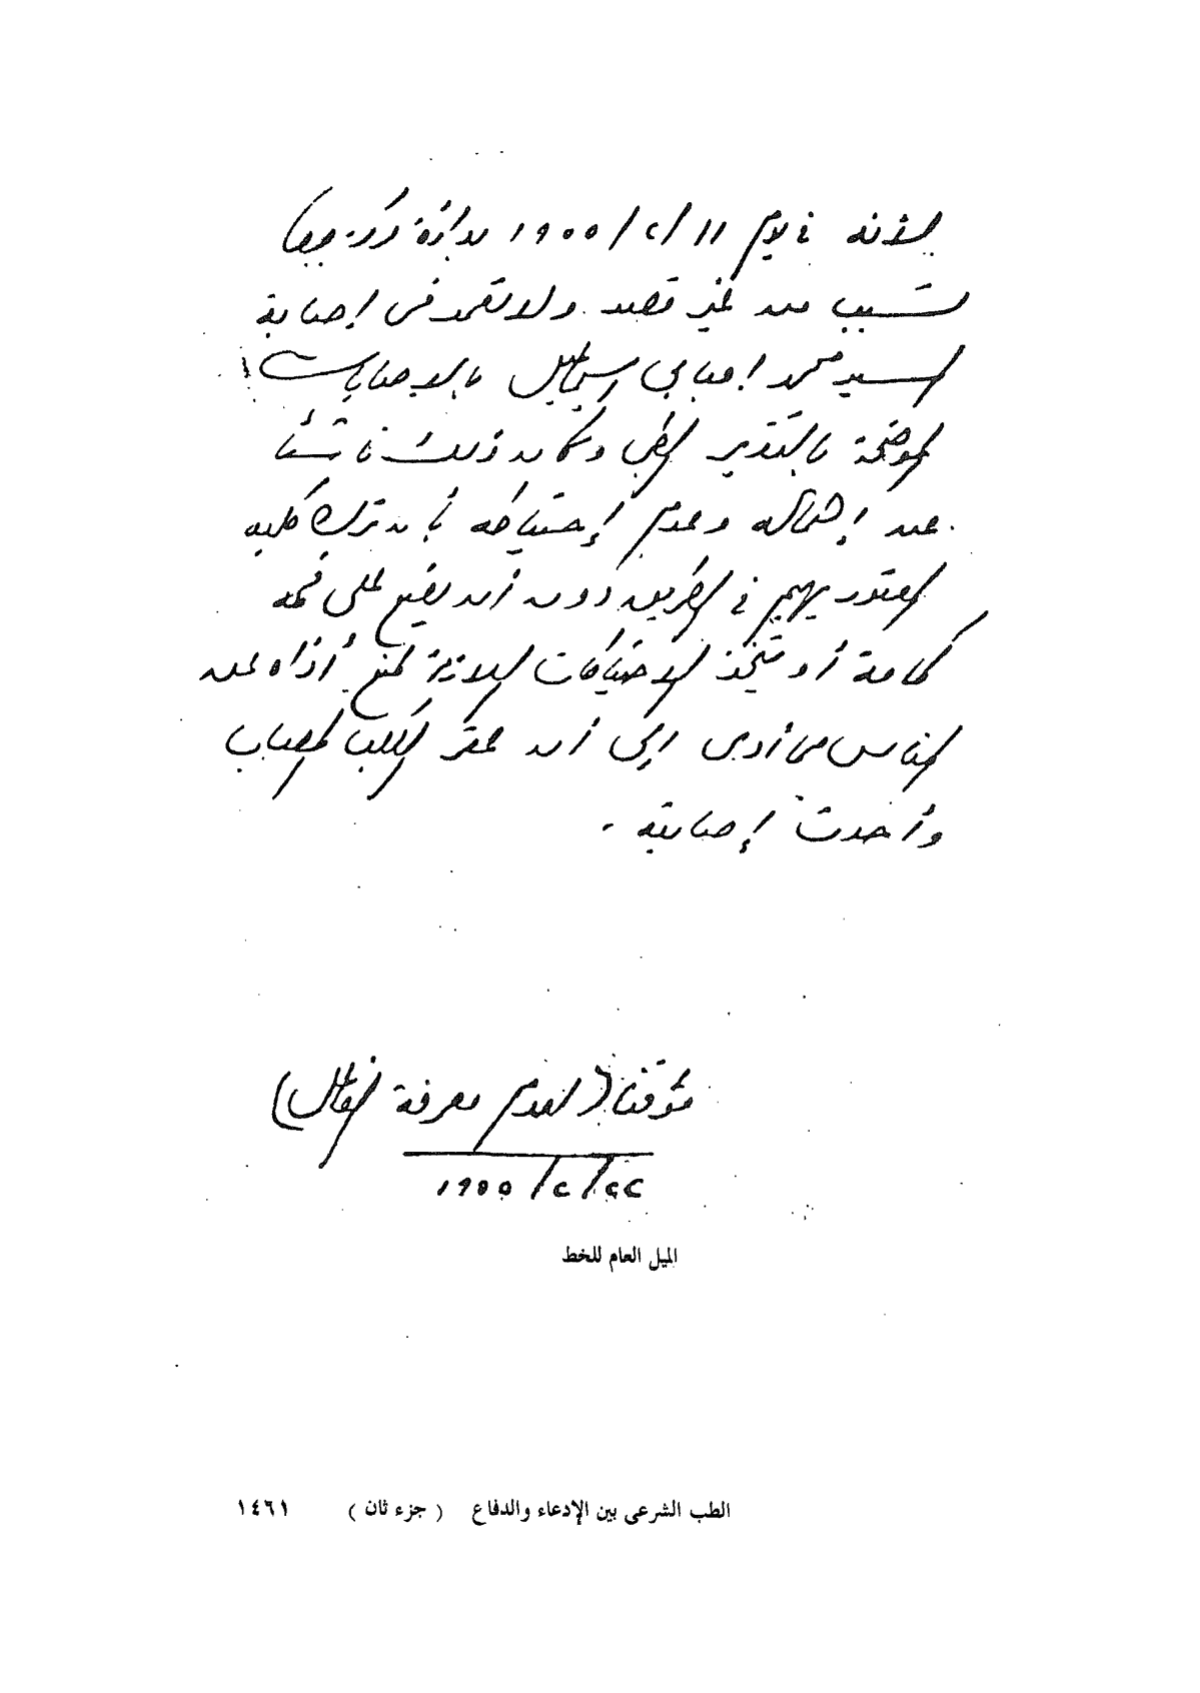 لأنه في يوم ١١/٢/١٩٥٥ بدائرة مركز
تسبب من غير قصد ولا تعمد في إصابة
السيد محمد إسماعيل بالإصابات
الموضحة بالتقرير الطبي وكان ذلك ناشئا
عن إهماله وعدم إحتياطه بأن ترك كلبه
العقور يهيم في الطريق دون أن يضع على فمه
كمامة أو يتخذ الاحتياطات اللازمة لمنع أذاه عن
الناس مما أدى إلى أن عقر الكلب المصاب
وأحدث إصابته .
مؤقتا (لعدم معرفة الفاعل)
٢٢/٢/١٩٥٥
الميل العام للخط
الطب الشرعى بين الإدعاء والدفاع ( جزء ثان ) ١٤٦١